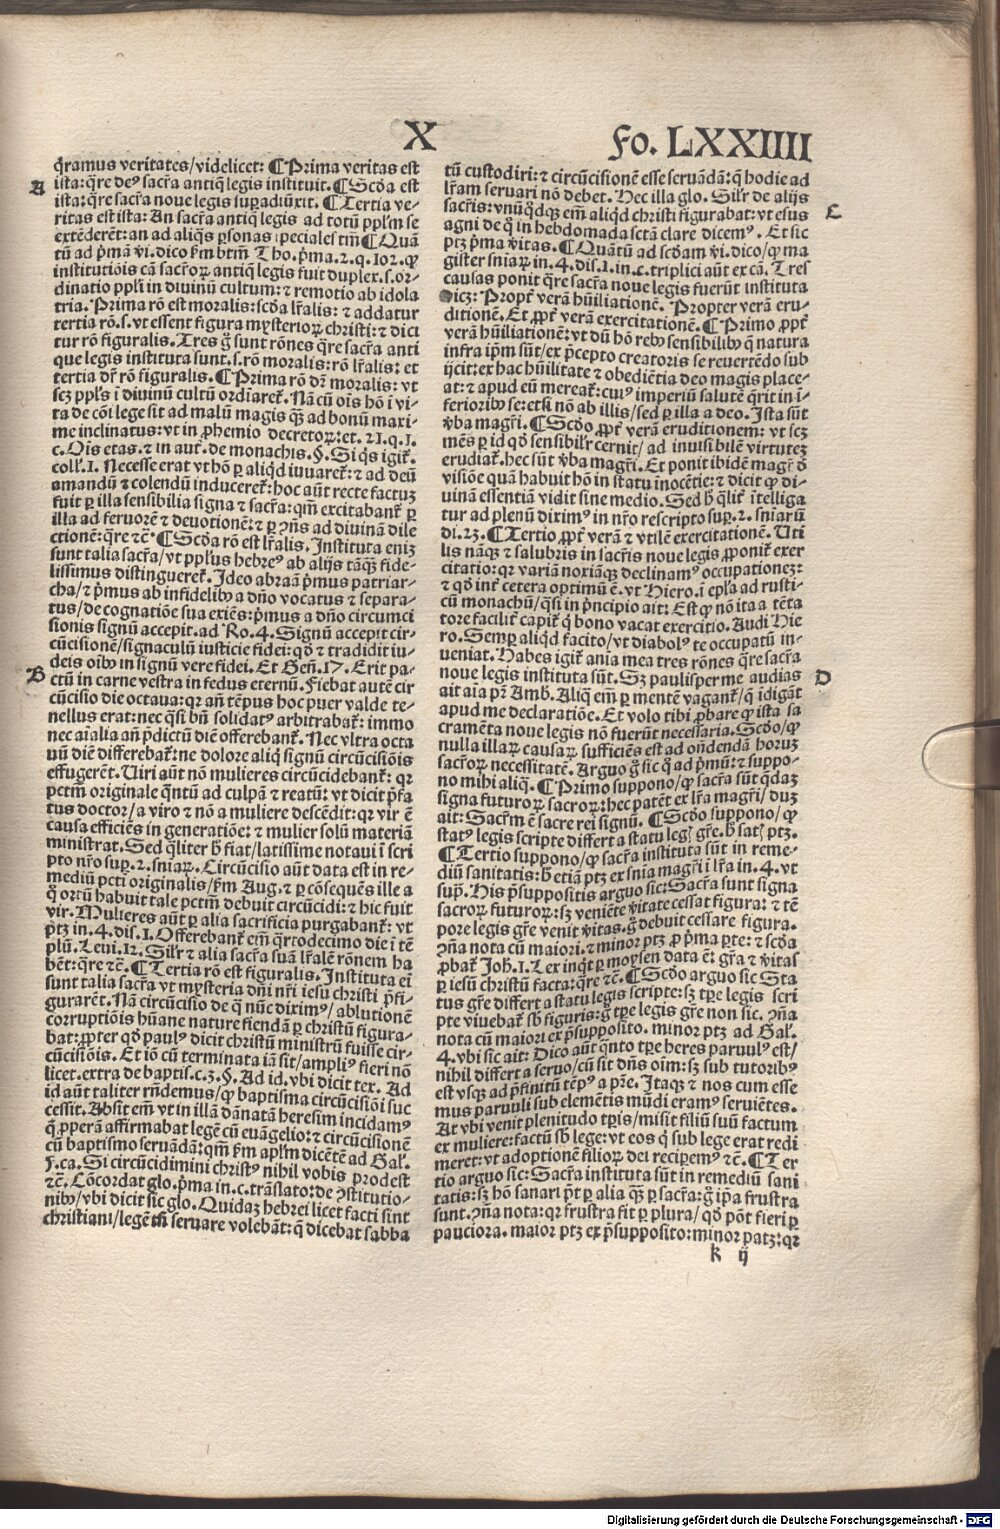 X
Fo. LXXIIII
q̄ramus veritates/videlicet: ¶Prima veritas est
A
ista: q̄re deꝰ sacr̄a antiq̄ legis instituit. ¶Scd̄a est
ista: q̄re sacr̄a noue legis superadiūxit. ¶Tertia ve-
ritas est ista: An sacr̄a antiq̄ legis ad totū ppl̄m se
extēderēt: an ad aliq̄s ꝑsonas speciales tm̄ ¶Quā
tū ad p̄mā vi. dico ẜm btm̄ Tho. p̄ma. 2. q. 102. ꝙ
institutiōis cā sacr̄oꝝ antiq̄ legis fuit duplex. s. or-
dinatio ppl̄i in diuinū cultum: ⁊ remotio ab idola
tria. Prima rō est moralis: scd̄a lr̄alis: ⁊ addatur
tertia rō. s. vt essent figura mysterioꝝ christi: ⁊ dici
tur rō figuralis. Tres g̊ sunt rōnes q̄re sacr̄a anti
que legis instituta sunt. s. rō moralis: rō lr̄alis: et
tertia dr̄ rō figuralis. ¶Prima rō dr̄ moralis: vt
scꝫ ppl̄s i diuinū cultū ordiaret᷑. Nā cū oīs hō i vi-
ta de cōi lege sit ad malū magis q̄ꝫ ad bonū maxi-
me inclinatus: vt in ꝓhemio decretoꝝ: et. 21. q. 1.
c. Oīs etas. ⁊ in aut̄. de monachis. §. Si q̄s igit᷑.
coll̄. 1. Necesse erat vt hō ꝑ aliqd̄ iuuaret᷑: ⁊ ad deū
amandū ⁊ colendū induceret᷑: hoc aūt recte factuꝫ
fuit ꝑ illa sensibilia signa ⁊ sacr̄a: qm̄ excitabant᷑ ꝑ
illa ad feruorē ⁊ deuotionē: ⁊ ꝑ ꝯn̄s ad diuinā dile
ctionē: q̄re ⁊c̄. ¶Scd̄a rō est lr̄alis. Instituta eniꝫ
sunt talia sacr̄a/vt ppl̄us hebreꝰ ab alijs tāq̄ꝫ fide-
lissimus distingueret᷑. Ideo abraā p̄mus patriar-
cha/⁊ p̄mus ab infidelibꝰ a dn̄o vocatus ⁊ separa-
tus/de cognatiōe sua exiēs: p̄mus a dn̄o circumci
sionis signū accepit. ad Ro. 4. Signū accepit cir-
cūcisionē/signaculū iusticie fidei: qd̄ ⁊ tradidit iu-
deis oībꝰ in signū vere fidei. Et Gen̄. 17. Erit pa-
B
ctū in carne vestra in fedus eternū. Fiebat autē cir
cūcisio die octaua: qꝛ an̄ tēpus hoc puer valde te-
nellus erat: nec q̄si bn̄ solidatꝰ arbitrabat᷑: immo
nec aīalia an̄ p̄dictū diē offerebant᷑. Nec vltra octa
uū diē differebat᷑: ne dolore aliq̄ signū circūcisiōis
effugerēt. Uiri aūt nō mulieres circūcidebant᷑: qꝛ
pctm̄ originale q̄ntū ad culpā ⁊ reatū: vt dicit p̄fa
tus doctor/a viro ⁊ nō a muliere descēdit: qꝛ vir ē
causa efficiēs in generatiōe: ⁊ mulier solū materiā
ministrat. Sed q̄liter h̄ fiat/latissime notaui i scri
pto nr̄o suꝑ. 2. sniaꝝ. Circūcisio aūt data est in re-
mediū pcti originalis/ẜm Aug. ⁊ ꝑ cōsequēs ille a
q̊ ortū habuit tale pctm̄ debuit circūcidi: ⁊ hic fuit
vir. Mulieres aūt ꝑ alia sacrificia purgabant᷑: vt
ptꝫ in. 4. dis. 1. Offerebant᷑ em̄ q̄rtodecimo die i tē
plū. Leui. 12. Silr̄ ⁊ alia sacr̄a suā lr̄alē rōnem ha
bēt: q̄re ⁊c̄. ¶Tertia rō est figuralis. Instituta ei̅
sunt talia sacr̄a vt mysteria dn̄i nr̄i iesu christi p̄fi-
gurarēt. Nā circūcisio de q̄ nūc diximꝰ/ablutionē
corruptiōis hūane nature fiendā ꝑ christū figura-
bat: ꝓpter qd̄ paulꝰ dicit christū ministrū fuisse cir-
cūcisiōis. Et iō cū terminata iā sit/ampliꝰ fieri nō
licet. extra de baptis. c. 3. §. Ad id. vbi dicit tex. Ad
id aūt taliter rn̄demus/ꝙ baptisma circūcisiōi suc
cessit. Absit em̄ vt in illā dānatā heresim incidamꝰ
q̄ ꝑperā affirmabat legē cū euāgelio: ⁊ circūcisionē
cū baptismo seruādā: qm̄ ẜm apl̄m dicētē ad Gal̄.
5. ca. Si circūcidimini christꝰ nihil vobis prodest
⁊c̄. Cōcordat glo. p̄ma in. c. trāslato: de ꝯstitutio-
nibꝰ/vbi dicit sic glo. Quidaꝫ hebrei licet facti sint
christiani/legē tn̄ seruare volebāt: q̄ dicebāt sabba
tū custodiri: ⁊ circūcisionē esse seruādā: q̄ hodie ad
lr̄am seruari nō debet. Hec illa glo. Silr̄ de alijs
sacr̄is: vnūq̊dq̄ꝫ em̄ aliqd̄ christi figurabat: vt esus
C
agni de q̊ in hebdomada sctā clare dicemꝰ. Et sic
ptꝫ p̄ma v̄itas. ¶Quātū ad scd̄am vi. dico/ꝙ ma
gister sniaꝝ in. 4. dis. 1. in. c. triplici aūt ex cā. Tres
causas ponit q̄re sacr̄a noue legis fuerūt instituta
dicꝫ: Propt̄ verā hūiliationē. Propter verā eru-
ditionē. Et ꝓpt̄ verā exercitationē. ¶Primo ꝓpt̄
verā hūiliationē: vt dū hō rebꝰ sensibilibꝰ q̄ natura
infra ip̄m sūt/ex p̄cepto creatoris se reuerēdo sub
ijcit: ex hac hūilitate ⁊ obediētia deo magis place-
at: ⁊ apud eū mereat᷑: cuiꝰ imperiū salutē q̄rit in i-
feriorib̄ se: etsi nō ab illis/sed ꝑ illa a deo. Ista sūt
v̄ba magr̄i. ¶Scd̄o ꝓpt̄ verā eruditionem: vt scꝫ
mēs ꝑ id qd̄ sensibilr̄ cernit/ad inuisibilē virtuteꝫ
erudiat᷑. hec sūt v̄ba magr̄i. Et ponit ibidē magr̄ d̄
visiōe quā habuit hō in statu inocētie: ⁊ dicit ꝙ di-
uinā essentiā vidit sine medio. Sed h̄ q̄lit̄ i̅telliga
tur ad plenū diximꝰ in nr̄o rescripto suꝑ. 2. sniarū
di. 23. ¶Tertio ꝓpt̄ verā ⁊ vtilē exercitationē. Uti
lis nāq̄ꝫ ⁊ salubris in sacr̄is noue legis ꝓponit᷑ exer
citatio: qꝛ variā noxiāq̄ꝫ declinamꝰ occupationeꝫ:
⁊ qd̄ int̄ cetera optimū ē. vt Hiero. i ep̄la ad rusti-
cū monachū/q̄si in p̄ncipio ait: Est ꝙ nō ita a tēta
tore facilit̄ capit᷑ q̄ bono vacat exercitio. Audi Hie
ro. Semꝑ aliqd̄ facito/vt diabolꝰ te occupatū in-
ueniat. Habes igit᷑ aīa mea tres rōnes q̄re sacr̄a
noue legis instituta sūt. Sꝫ paulisper me audias
D
ait aīa pr̄ Amb. Aliq̄ em̄ ꝑ mentē vagant᷑/q̄ idigāt
apud me declaratiōe. Et volo tibi ꝓbare ꝙ ista sa
cramēta noue legis nō fuerūt necessaria. Scd̄o/ꝙ
nulla illaꝝ causaꝝ sufficiēs est ad on̄dendā horuꝫ
sacr̄oꝝ necessitatē. Arguo g̊ sic q̊ ad p̄mū: ⁊ suppo-
no mihi aliq̄. ¶Primo suppono/ꝙ sacr̄a sūt q̄daꝫ
signa futuroꝝ sacroꝝ: hec patēt ex lr̄a magr̄i/duꝫ
ait: Sacr̄m ē sacre rei signū. ¶Scd̄o suppono/ꝙ
statꝰ legis scripte differt a statu leḡ gr̄e. h̄ sat̄ ptꝫ.
¶Tertio suppono/ꝙ sacr̄a instituta sūt in reme-
diū sanitatis: h̄ etiā ptꝫ ex snia magr̄i i lr̄a in. 4. vt
supꝰ. His p̄suppositis arguo sic: Sacr̄a sunt signa
sacroꝝ futuroꝝ: sꝫ veniēte v̄itate cessat figura: ⁊ tē
pore legis gr̄e venit v̄itas. g̊ debuit cessare figura.
ꝯn̄a nota cū maiori. ⁊ minor ptꝫ ꝓ p̄ma ꝑte: ⁊ scd̄a
ꝓbat᷑ Joh̄. 1. Lex inq̄t ꝑ moysen data ē: gr̄a ⁊ v̄itas
ꝑ iesū christū facta: q̄re ⁊c̄. ¶Scd̄o arguo sic Sta
tus gr̄e differt a statu legis scripte: sꝫ tꝑe legis scri
pte viuebat᷑ sb̄ figuris: g̊ tꝑe legis gr̄e non sic. ꝯn̄a
nota cū maiori ex p̄supposito. minor ptꝫ ad Gal̄.
4. vbi sic ait: Dico aūt q̄nto tꝑe heres paruulꝰ est/
nihil differt a seruo/cū sit dn̄s oīm: sꝫ sub tutoribꝰ
est vsqꝫ ad p̄finitū tēpꝰ a pr̄e. Itaqꝫ ⁊ nos cum esse
mus paruuli sub elemētis mūdi eramꝰ seruiētes.
At vbi venit plenitudo tꝑis/misit filiū suū factum
ex muliere: factū sb̄ lege: vt eos q̄ sub lege erāt redi
meret: vt adoptionē filioꝝ dei reciꝑemꝰ ⁊c̄. ¶Ter
tio arguo sic: Sacr̄a instituta sūt in remediū sani
tatis: sꝫ hō sanari pōt ꝑ alia q̄ꝫ ꝑ sacr̄a: g̊ ip̄a frustra
sunt. ꝯn̄a nota: qꝛ frustra fit ꝑ plura/qd̄ pōt fieri ꝑ
pauciora. maior ptꝫ ex p̄supposito: minor patꝫ: qꝛ
k ij
Digitalisierung gefördert durch die Deutsche Forschungsgemeinschaft - DFG